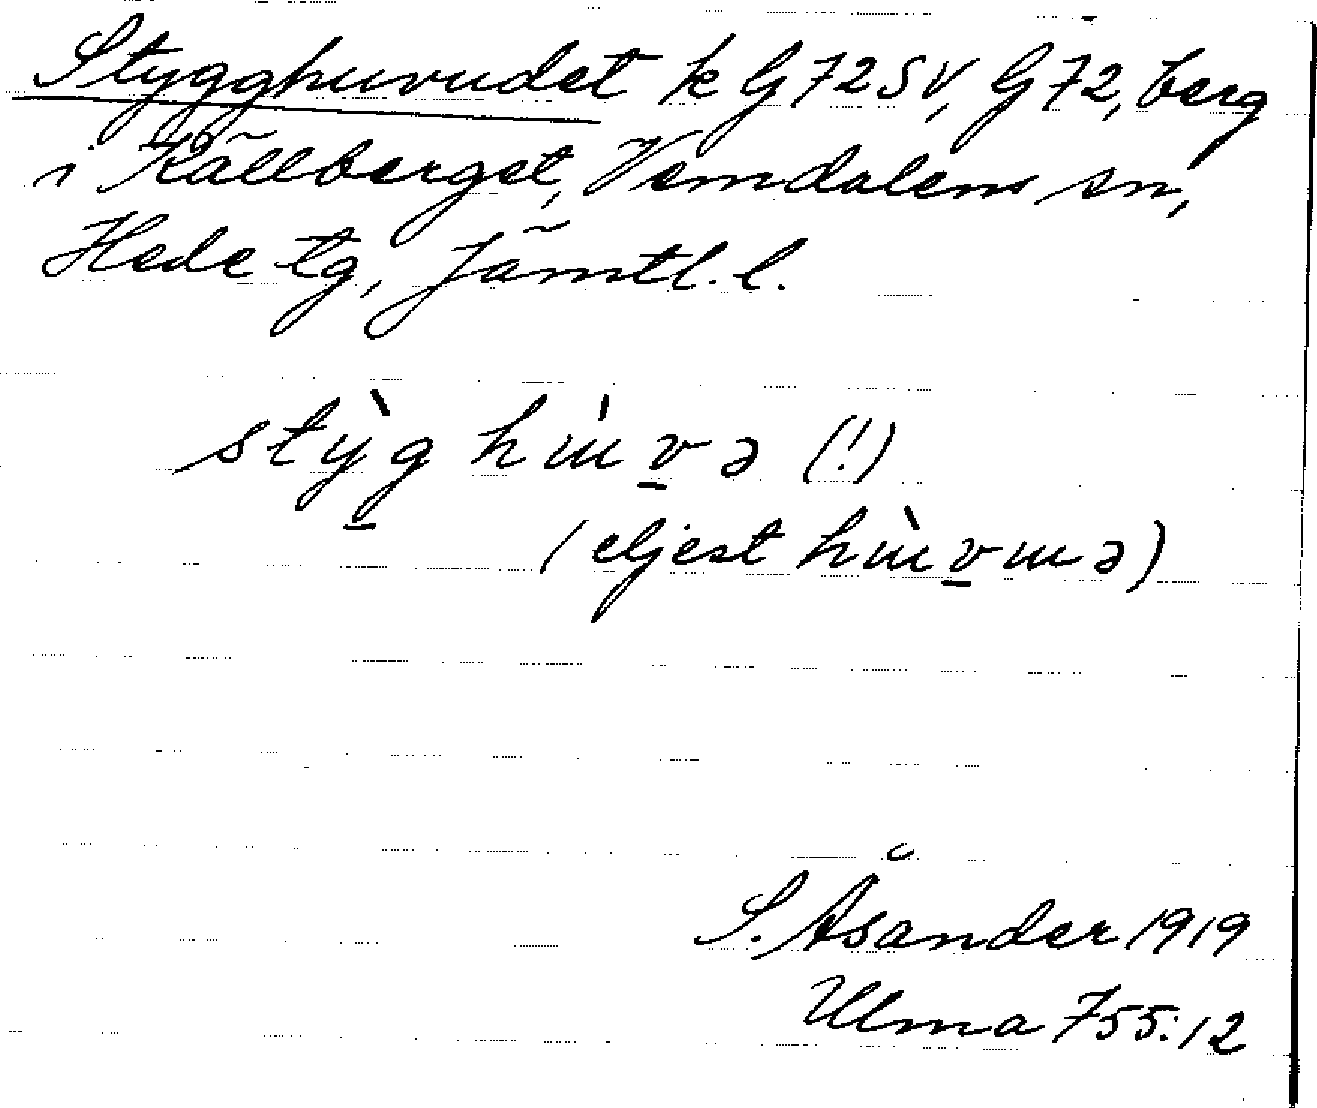 Stygghuvudet k G72SV, G72, berg
i Källberget, Vemdalens sn,
Hede tg, Jämtl. l.
stỳ̱g hɯ́v̱ə (!)
(eljest hɯ̀v̱ɯə)
S. Åsander 1919
Ulma 755:12